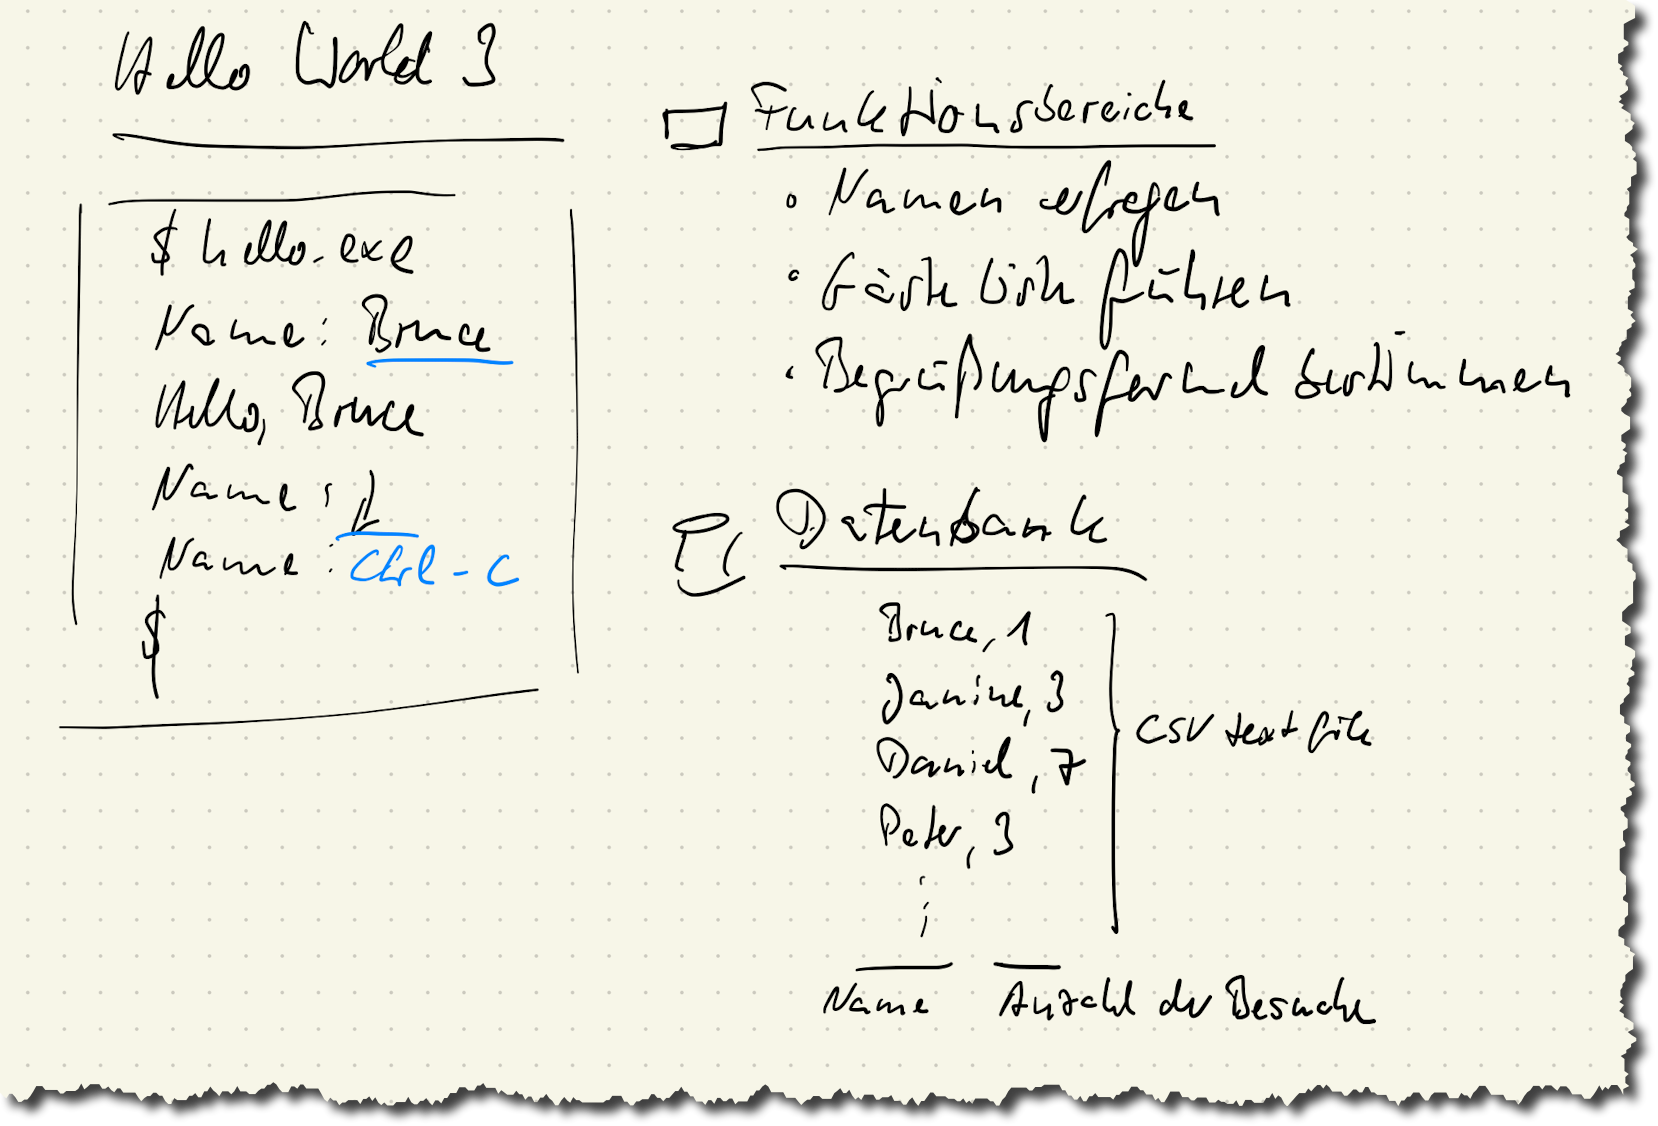 Hello World 3
$ hello.exe
Name: Bruce
Hello, Bruce
Name:
Name: Ctrl-C
$
Funktionsbereiche
• Namen erfragen
• Gästeliste führen
• Begrüßungsformel bestimmen
Datenbank
Bruce, 1
Janine, 3
Daniel, 7
Peter, 3
CSV textfile
Name Anzahl der Besuche